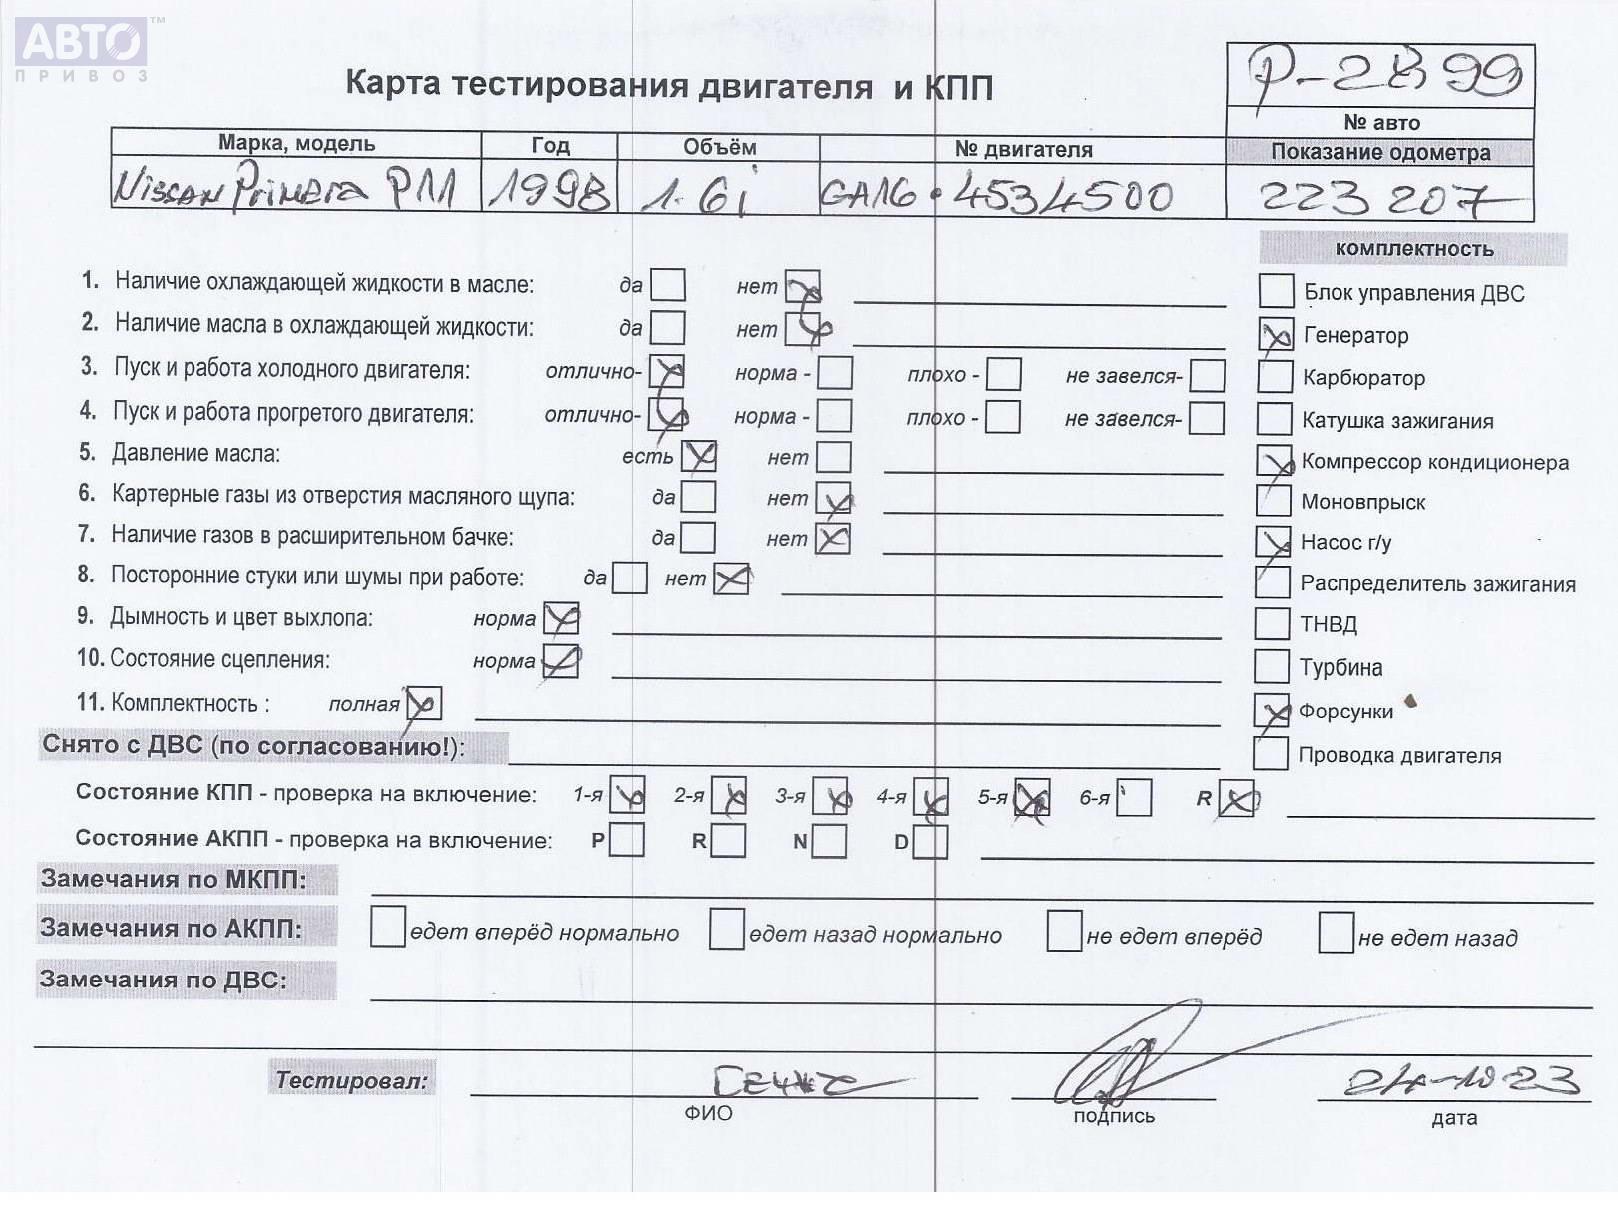 АВТО™
ПРИВОЗ
Р-2899
Карта тестирования двигателя и КПП
№ авто
Марка, модель Год Объём № двигателя Показание одометра
Nissan Primera P11 1998 1.6i GA16 • 4534500 223 207
комплектность
1. Наличие охлаждающей жидкости в масле: да нет
Блок управления ДВС
2. Наличие масла в охлаждающей жидкости: да нет
Генератор
3. Пуск и работа холодного двигателя: отлично- норма - плохо - не завелся-
Карбюратор
4. Пуск и работа прогретого двигателя: отлично- норма - плохо - не завелся-
Катушка зажигания
5. Давление масла: есть нет
Компрессор кондиционера
6. Картерные газы из отверстия масляного щупа: да нет
Моновпрыск
7. Наличие газов в расширительном бачке: да нет
Насос г/у
8. Посторонние стуки или шумы при работе: да нет
Распределитель зажигания
9. Дымность и цвет выхлопа: норма
ТНВД
10. Состояние сцепления: норма
Турбина
11. Комплектность : полная
Форсунки
Снято с ДВС (по согласованию!):
Проводка двигателя
Состояние КПП - проверка на включение: 1-я 2-я 3-я 4-я 5-я 6-я R
Состояние АКПП - проверка на включение: P R N D
Замечания по МКПП:
Замечания по АКПП: едет вперёд нормально едет назад нормально не едет вперёд не едет назад
Замечания по ДВС:
Тестировал:
ФИО подпись дата